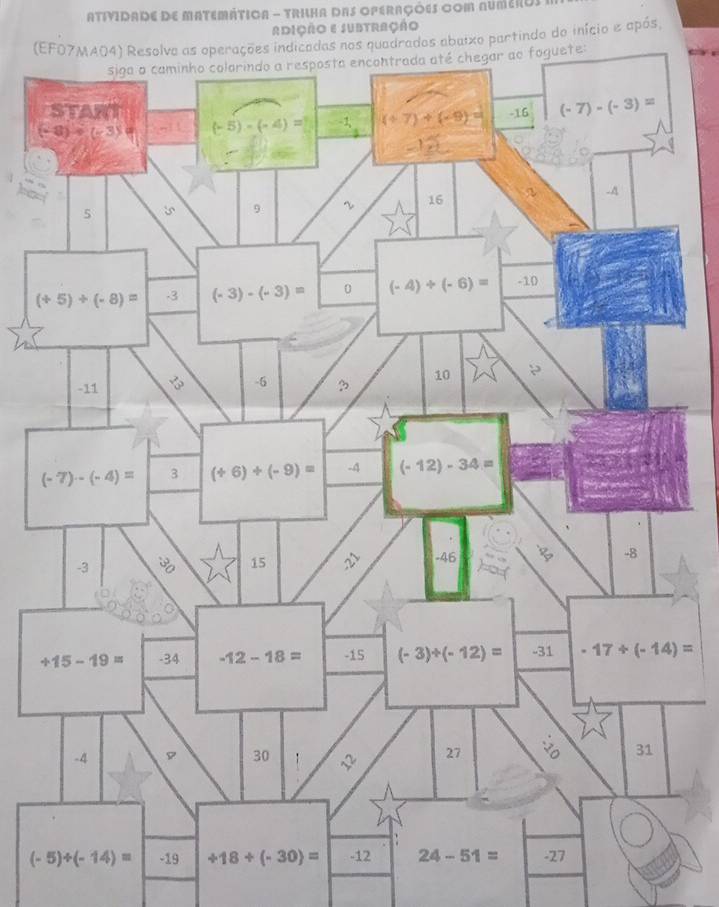 ATIVIDADE DE MATEMÁTICA – TRILHA DAS OPERAÇÕES COM NÚMEROS
ADIÇÃO E SUBTRAÇÃO
(EF07MA04) Resolva as operações indicadas nos quadrados abaixo partindo do início e após,
siga o caminho colorindo a resposta encontrada até chegar ao foguete:
START
(- 8) + (- 3) =
-11
(- 5) - (- 4) =
-1
(+ 7) + (- 9) =
-16
(- 7) - (- 3) =
5
-5
9
2
16
-2
-4
(+ 5) + (- 8) =
-3
(- 3) - (- 3) =
0
(- 4) + (- 6) =
-10
-11
13
-6
-3
10
-2
(- 7) - (- 4) =
3
(+ 6) + (- 9) =
-4
(- 12) - 34 =
-3
-30
15
-21
-46
-44
-8
+15 – 19 =
-34
-12 – 18 =
-15
(- 3)+(- 12) =
-31
- 17 + (- 14) =
-4
4
30
12
27
-10
31
(- 5)+(- 14) =
-19
+18 + (- 30) =
-12
24 – 51 =
-27